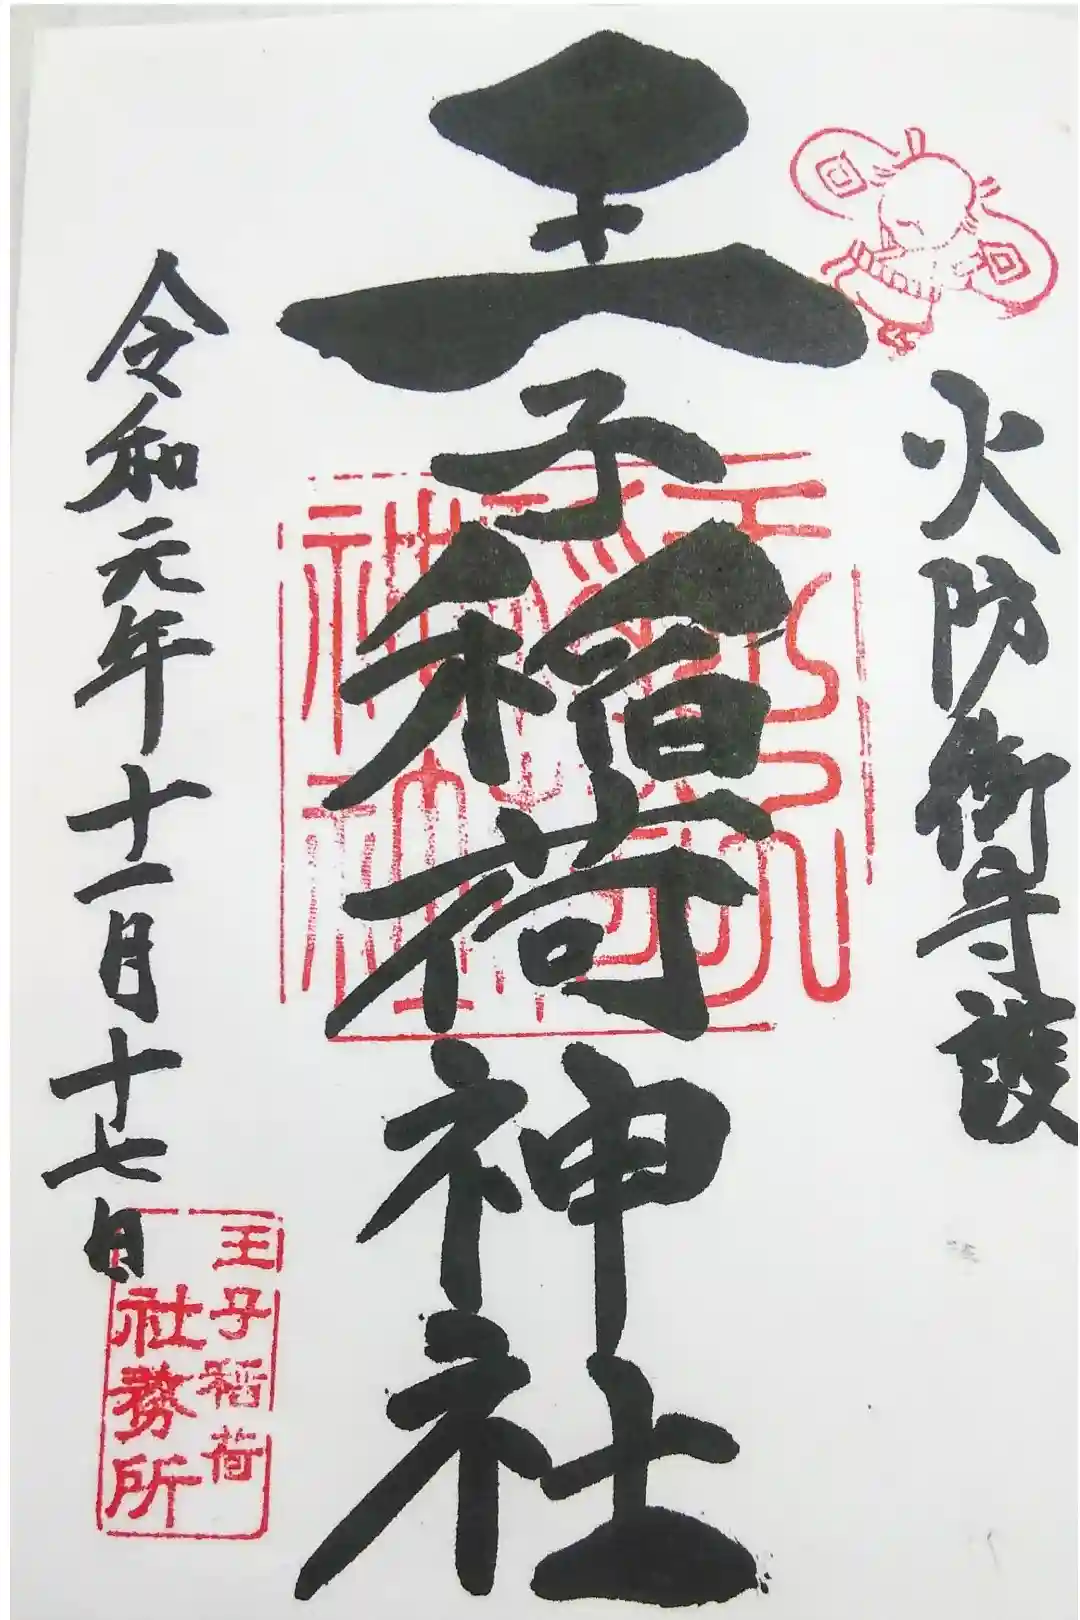 火防衛守護
王子稲荷神社
令和元年十一月十七日
王子稲荷
社務所